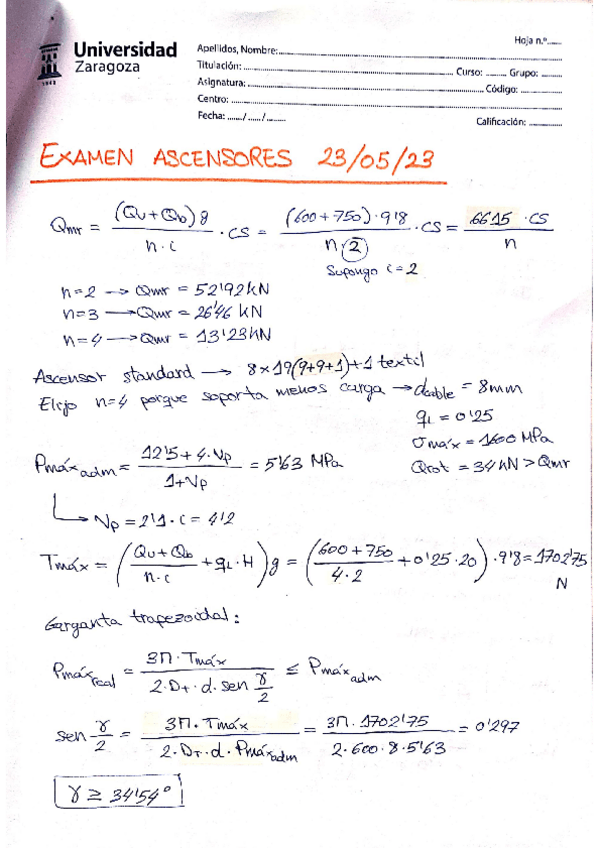 Hoja n.º......
Universidad
Zaragoza
1542
Apellidos, Nombre:
Titulación: Curso: Grupo:
Asignatura: Código:
Centro:
Fecha: ....../....../...... Calificación:
EXAMEN ASCENSORES 23/05/23
Qmr = (Qu+Qb)g / n·i · CS = (600+750)·9'8 / n·2 · CS = 6615 · CS / n
Supongo i=2
n=2 → Qmr = 52'92 kN
n=3 → Qmr = 26'46 kN
n=4 → Qmr = 13'23 kN
Ascensor standard → 8×19(9+9+1)+1 textil
Elijo n=4 porque soporta menos carga → dcable = 8mm
qL = 0'25
σmáx = 1600 MPa
Qrot = 34 kN > Qmr
Pmáx adm = 12'5 + 4·Vp / 1+Vp = 5'63 MPa
↳ Vp = 2'1 · i = 4'2
Tmáx = (Qu+Qb / n·i + qL·H) g = (600+750 / 4·2 + 0'25·20) · 9'8 = 1702'75 N
Garganta trapezoidal:
Pmáx real = 3π·Tmáx / 2·DT·d·sen γ/2 ≤ Pmáx adm
sen γ/2 = 3π·Tmáx / 2·DT·d·Pmáx adm = 3π·1702'75 / 2·600·8·5'63 = 0'297
γ ≥ 34'54°